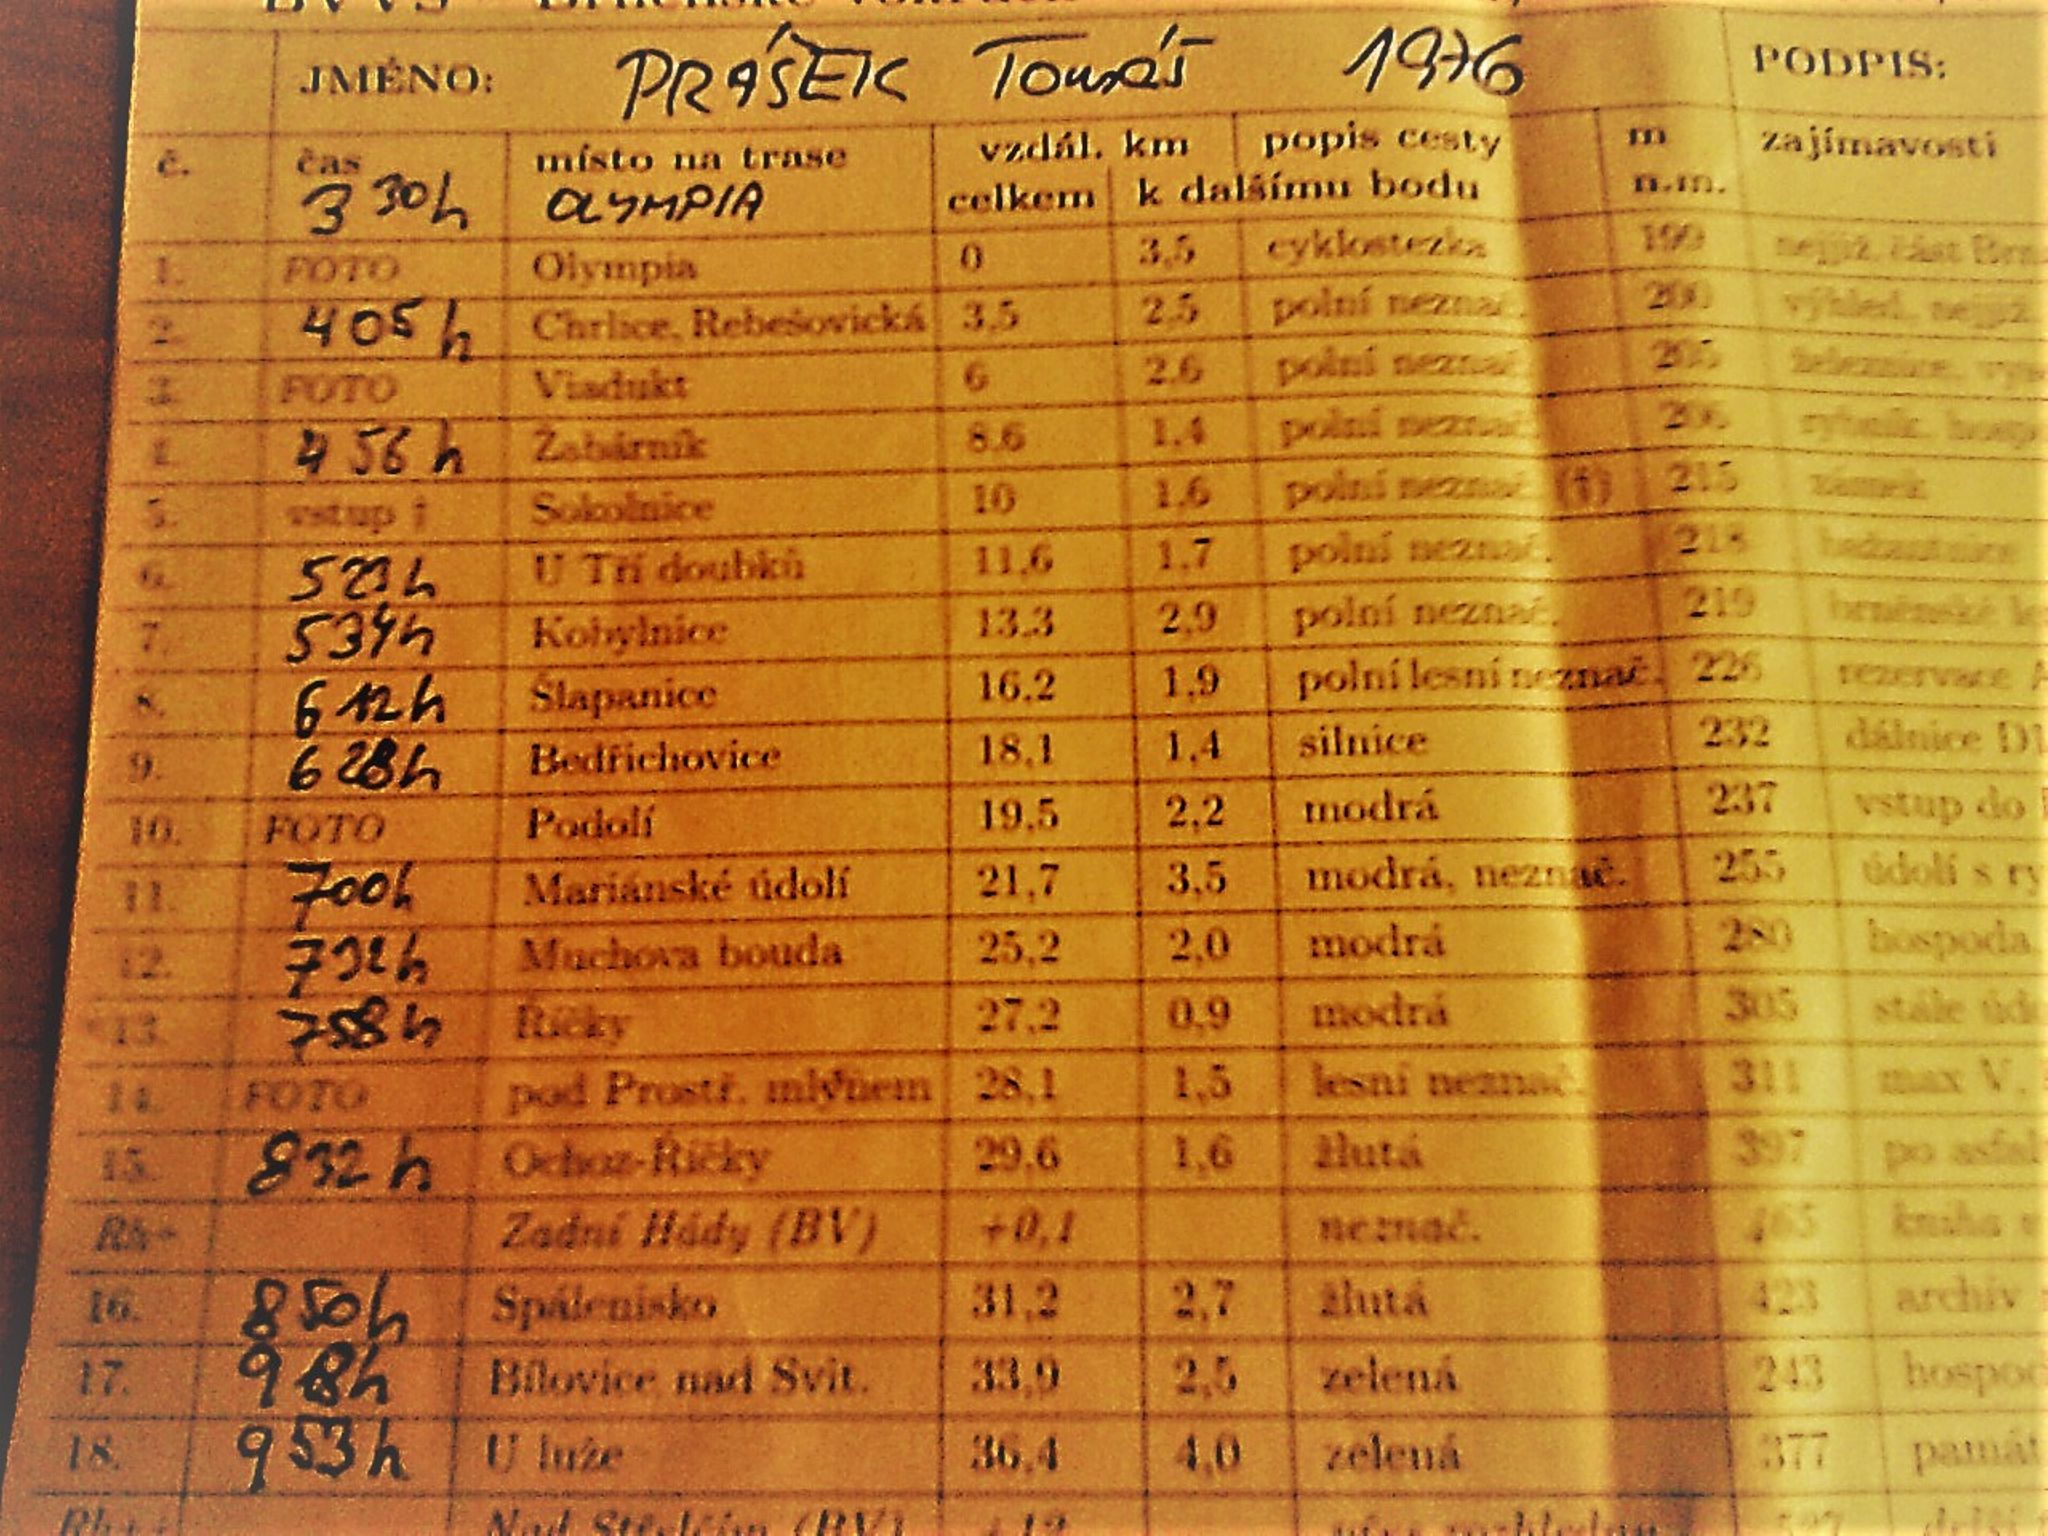 JMÉNO: PRÁŠEK TOMÁŠ 1976 PODPIS:
č. čas místo na trase vzdál. km popis cesty m zajímavosti
3 30 h OLYMPIA celkem k dalšímu bodu n.m.
1. FOTO Olympia 0 3,5 cyklostezka 199 nejjiž. část
2. 4 05 h Chrlice, Rebešovická 3,5 2,5 polní neznač. 200 výhled, nejjiž.
3. FOTO Viadukt 6 2,6 polní neznač. 205 železnice,
4. 4 56 h Žabárník 8,6 1,4 polní neznač. 206 rybník,
5. vstup † Sokolnice 10 1,6 polní neznač. (†) 215 zámek
6. U Tří doubků 11,6 1,7 polní neznač. 218 bažantnice
7. 5 34 h Kobylnice 13,3 2,9 polní neznač. 219 brněnské
8. 6 12 h Šlapanice 16,2 1,9 polní lesní neznač. 226 rezervace
9. 6 28 h Bedřichovice 18,1 1,4 silnice 232 dálnice D1
10. FOTO Podolí 19,5 2,2 modrá 237 vstup do
11. 7 00 h Mariánské údolí 21,7 3,5 modrá, neznač. 255 údolí s
12. 7 32 h Muchova bouda 25,2 2,0 modrá 280 hospoda,
13. 7 58 h Říčky 27,2 0,9 modrá 305 stále
14. FOTO pod Prostř. mlýnem 28,1 1,5 lesní neznač. 311 max V.
15. 8 32 h Ochoz-Říčky 29,6 1,6 žlutá 397 po
Rh+ Zadní Hády (BV) +0,1 neznač. 465 kniha
16. 8 50 h Spálenisko 31,2 2,7 žlutá 423 archiv
17. 9 18 h Bílovice nad Svit. 33,9 2,5 zelená 243
18. 9 53 h U luže 36,4 4,0 zelená 377
Nad Střelčím (BV)